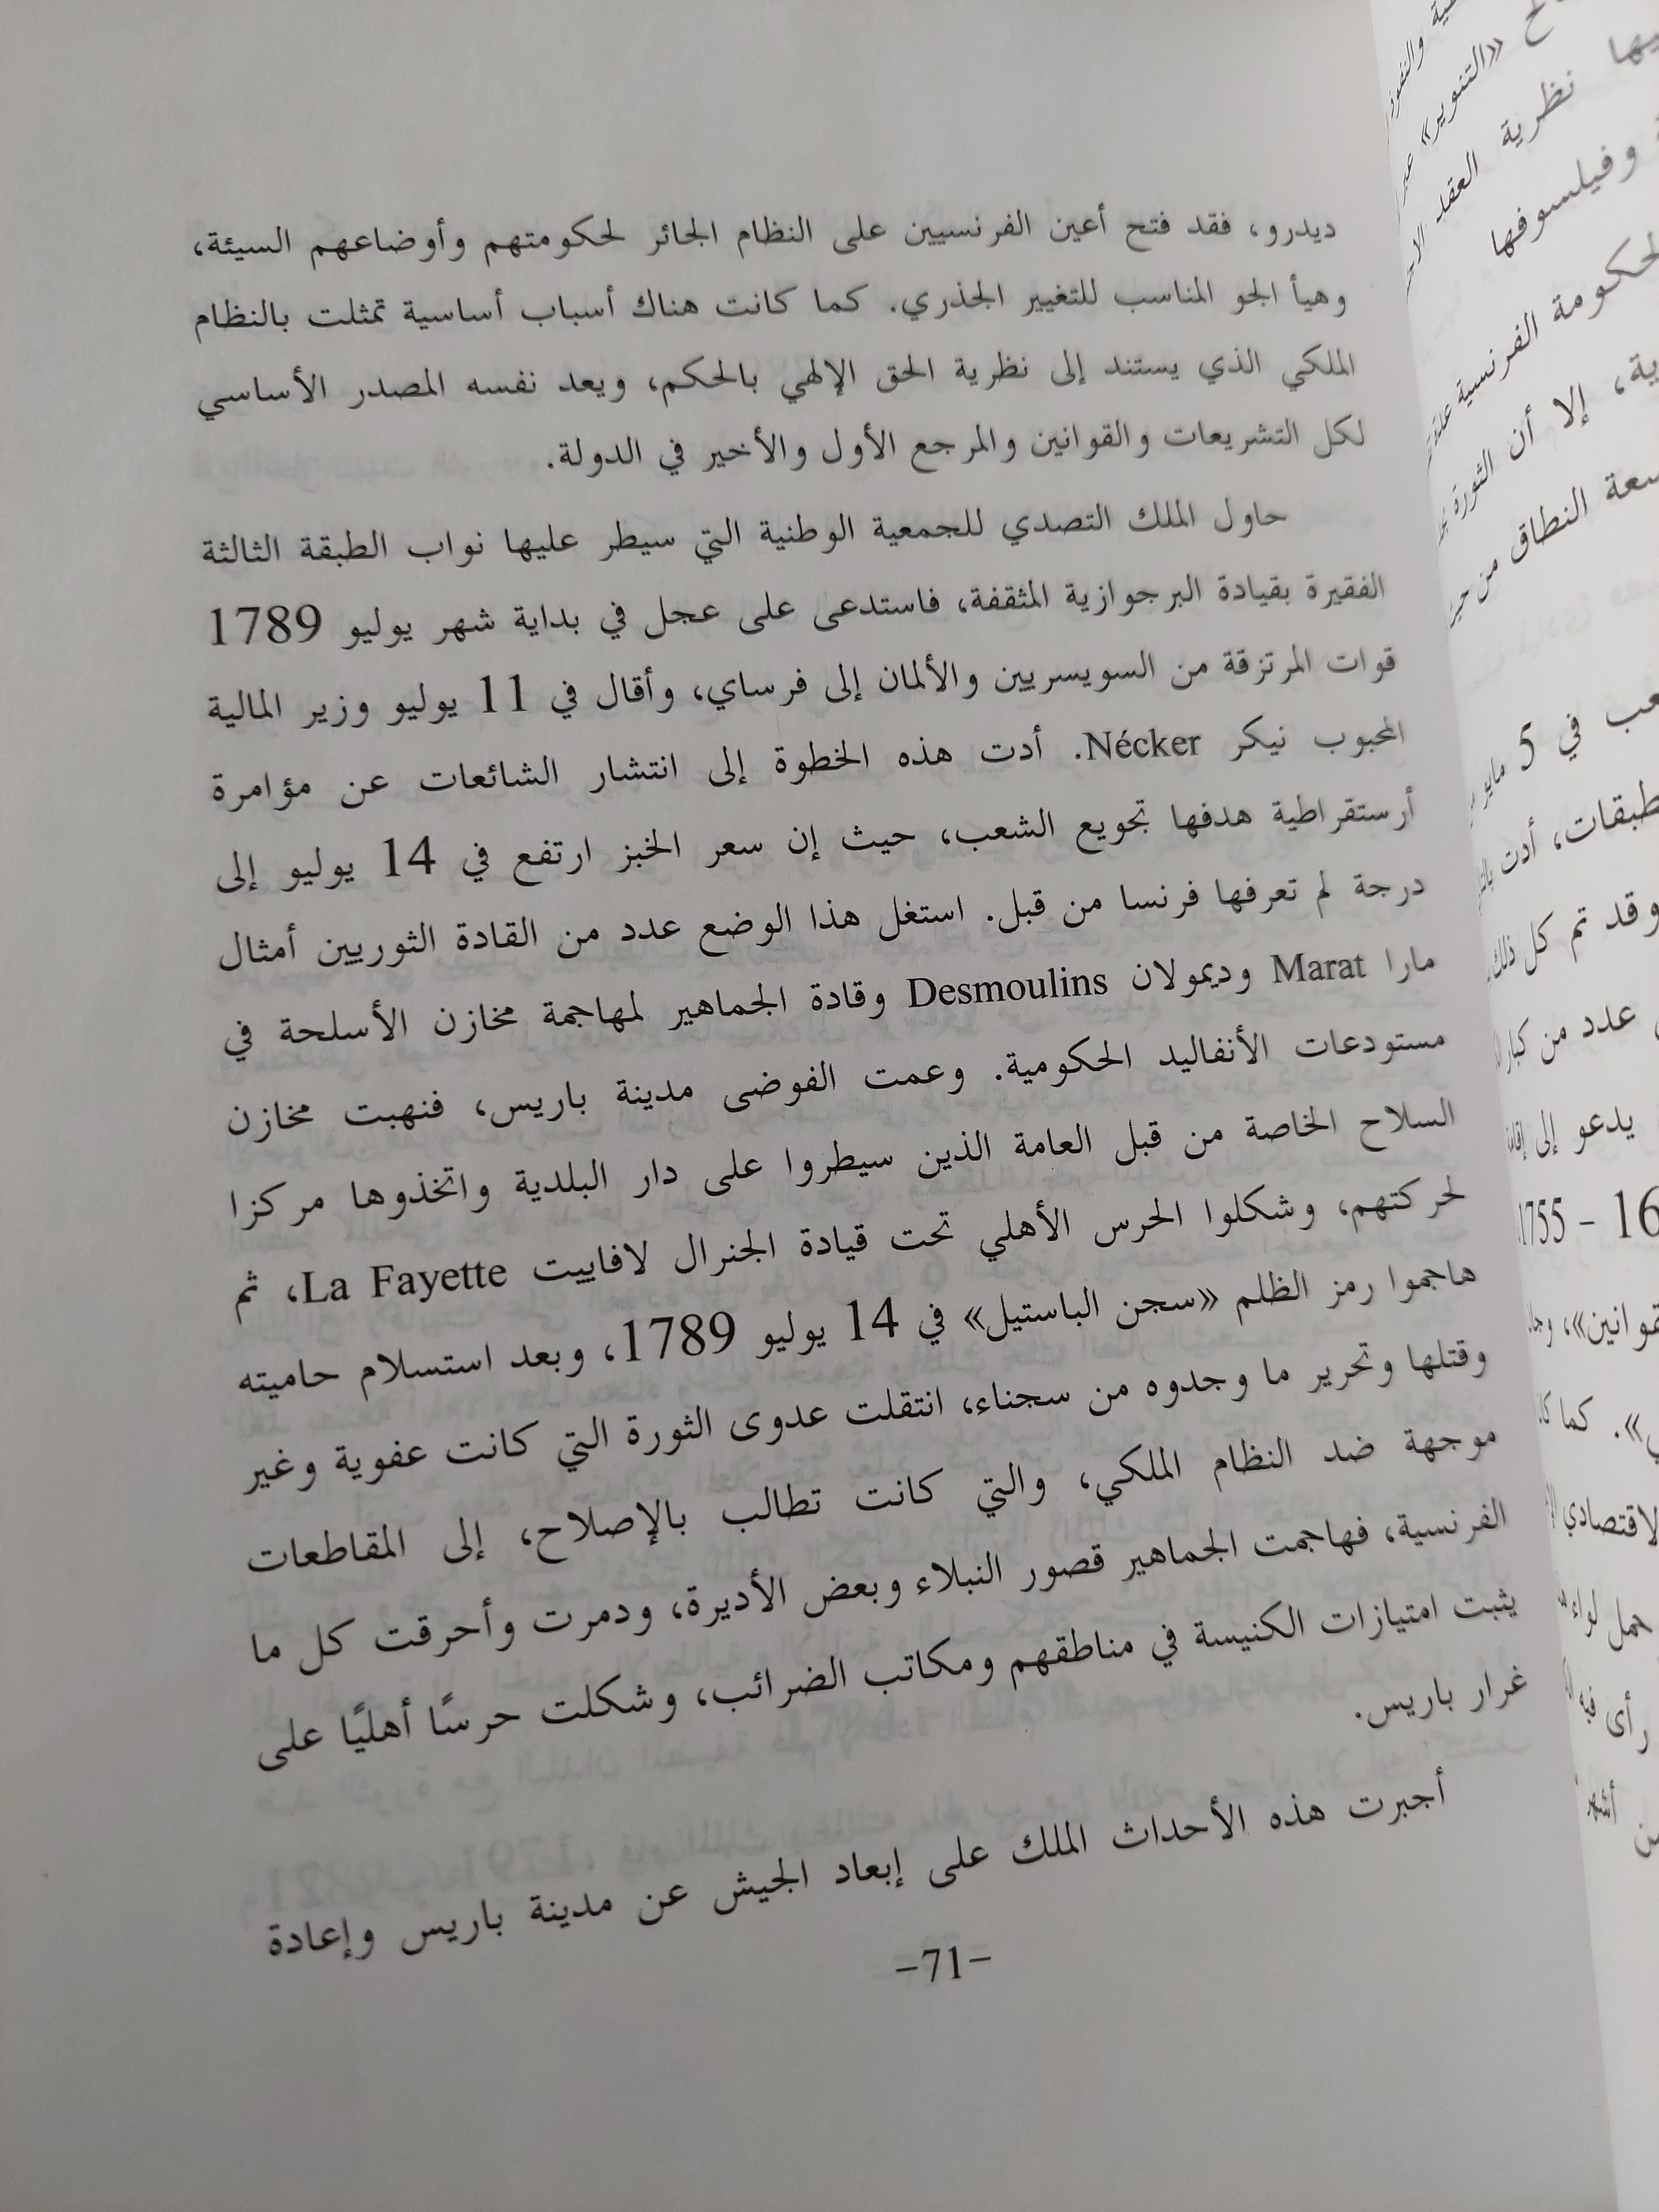 ديدرو، فقد فتح أعين الفرنسيين على النظام الجائر لحكومتهم وأوضاعهم السيئة،
وهيأ الجو المناسب للتغيير الجذري. كما كانت هناك أسباب أساسية تمثلت بالنظام
الملكي الذي يستند إلى نظرية الحق الإلهي بالحكم، ويعد نفسه المصدر الأساسي
لكل التشريعات والقوانين والمرجع الأول والأخير في الدولة.
حاول الملك التصدي للجمعية الوطنية التي سيطر عليها نواب الطبقة الثالثة
الفقيرة بقيادة البرجوازية المثقفة، فاستدعى على عجل في بداية شهر يوليو 1789
قوات المرتزقة من السويسريين والألمان إلى فرساي، وأقال في 11 يوليو وزير المالية
المحبوب نيكر Nécker. أدت هذه الخطوة إلى انتشار الشائعات عن مؤامرة
أرستقراطية هدفها تجويع الشعب، حيث إن سعر الخبز ارتفع في 14 يوليو إلى
درجة لم تعرفها فرنسا من قبل. استغل هذا الوضع عدد من القادة الثوريين أمثال
مارا Marat وديمولان Desmoulins وقادة الجماهير لمهاجمة مخازن الأسلحة في
مستودعات الأنفاليد الحكومية. وعمت الفوضى مدينة باريس، فنهبت مخازن
السلاح الخاصة من قبل العامة الذين سيطروا على دار البلدية واتخذوها مركزا
لحركتهم، وشكلوا الحرس الأهلي تحت قيادة الجنرال لافاييت La Fayette، ثم
هاجموا رمز الظلم «سجن الباستيل» في 14 يوليو 1789، وبعد استسلام حاميته
وقتلها وتحرير ما وجدوه من سجناء، انتقلت عدوى الثورة التي كانت عفوية وغير
موجهة ضد النظام الملكي، والتي كانت تطالب بالإصلاح، إلى المقاطعات
الفرنسية، فهاجمت الجماهير قصور النبلاء وبعض الأديرة، ودمرت وأحرقت كل ما
يثبت امتيازات الكنيسة في مناطقهم ومكاتب الضرائب، وشكلت حرسًا أهليًا على
غرار باريس.
أجبرت هذه الأحداث الملك على إبعاد الجيش عن مدينة باريس وإعادة
-71-
«التنوير»
نظرية العقد
وفيلسوفها
لحكومة الفرنسية
إلا أن الثورة
النطاق من
في 5 مايو
أدت
وقد تم كل ذلك
عدد من كبار
يدعو إلى
1755 - 16
كما
حمل لواء
رأى فيه